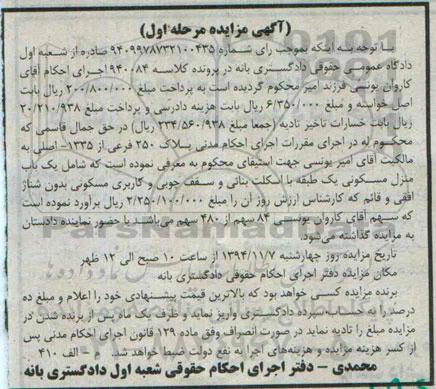 (آگهی مزایده مرحله اول)
با توجه به اینکه بموجب رای شماره ۹۴۰۹۹۷۸۷۳۲۱۰۰۴۳۵ صادره از شعبه اول
دادگاه عمومی حقوقی دادگستری بانه در پرونده کلاسه ۹۴۰۰۸۴ اجرای احکام آقای
کاروان یونسی فرزند امیر محکوم گردیده است به پرداخت مبلغ ۲۰۰/۸۰۰/۰۰۰ ریال بابت
اصل خواسته و مبلغ ۶/۳۵۰/۰۰۰ ریال بابت هزینه دادرسی و پرداخت مبلغ ۲۰/۲۱۰/۹۳۸
ریال بابت خسارات تاخیر تادیه (جمعا مبلغ ۲۳۴/۵۶۰/۹۳۸ ریال) در حق جمال قاسمی که
محکوم له در اجرای مقررات اجرای احکام مدنی پلاک ۲۵۰ فرعی از ۱۳۳۵- اصلی به
مالکیت آقای امیر یونسی جهت استیفای محکوم به معرفی نموده است که شامل یک باب
منزل مسکونی یک طبقه با اسکلت بنائی و سقف چوبی و کاربری مسکونی بدون شناژ
افقی و قائم که کارشناس ارزش روز آن را مبلغ ۲/۲۵۰/۱۰۰/۰۰۰ ریال برآورد نموده است
که سهم آقای کاروان یونسی ۸۴ سهم از ۴۸۰ سهم می‌باشد با حضور نماینده دادستان
به مزایده گذاشته می‌شود.
تاریخ مزایده روز چهارشنبه ۱۳۹۴/۱۱/۷ از ساعت ۱۰ صبح الی ۱۲ ظهر
مکان مزایده دفتر اجرای احکام حقوقی دادگستری بانه
برنده مزایده کسی خواهد بود که بالاترین قیمت پیشنهادی خود را اعلام و مبلغ ده
درصد را به حساب سپرده دادگستری واریز نماید و ظرف یک ماه پس از برنده شدن در
مزایده مبلغ را تادیه نماید در صورت انصراف وفق ماده ۱۲۹ قانون اجرای احکام مدنی پس
از کسر هزینه مزایده و هزینه‌های اجرا به نفع دولت ضبط خواهد شد. م - الف ۴۱۰
محمدی - دفتر اجرای احکام حقوقی شعبه اول دادگستری بانه
ParsNamadData